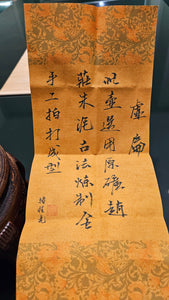 虛扁
此壺選用原礦趙
莊朱泥古法煉制全
手工拍打成型